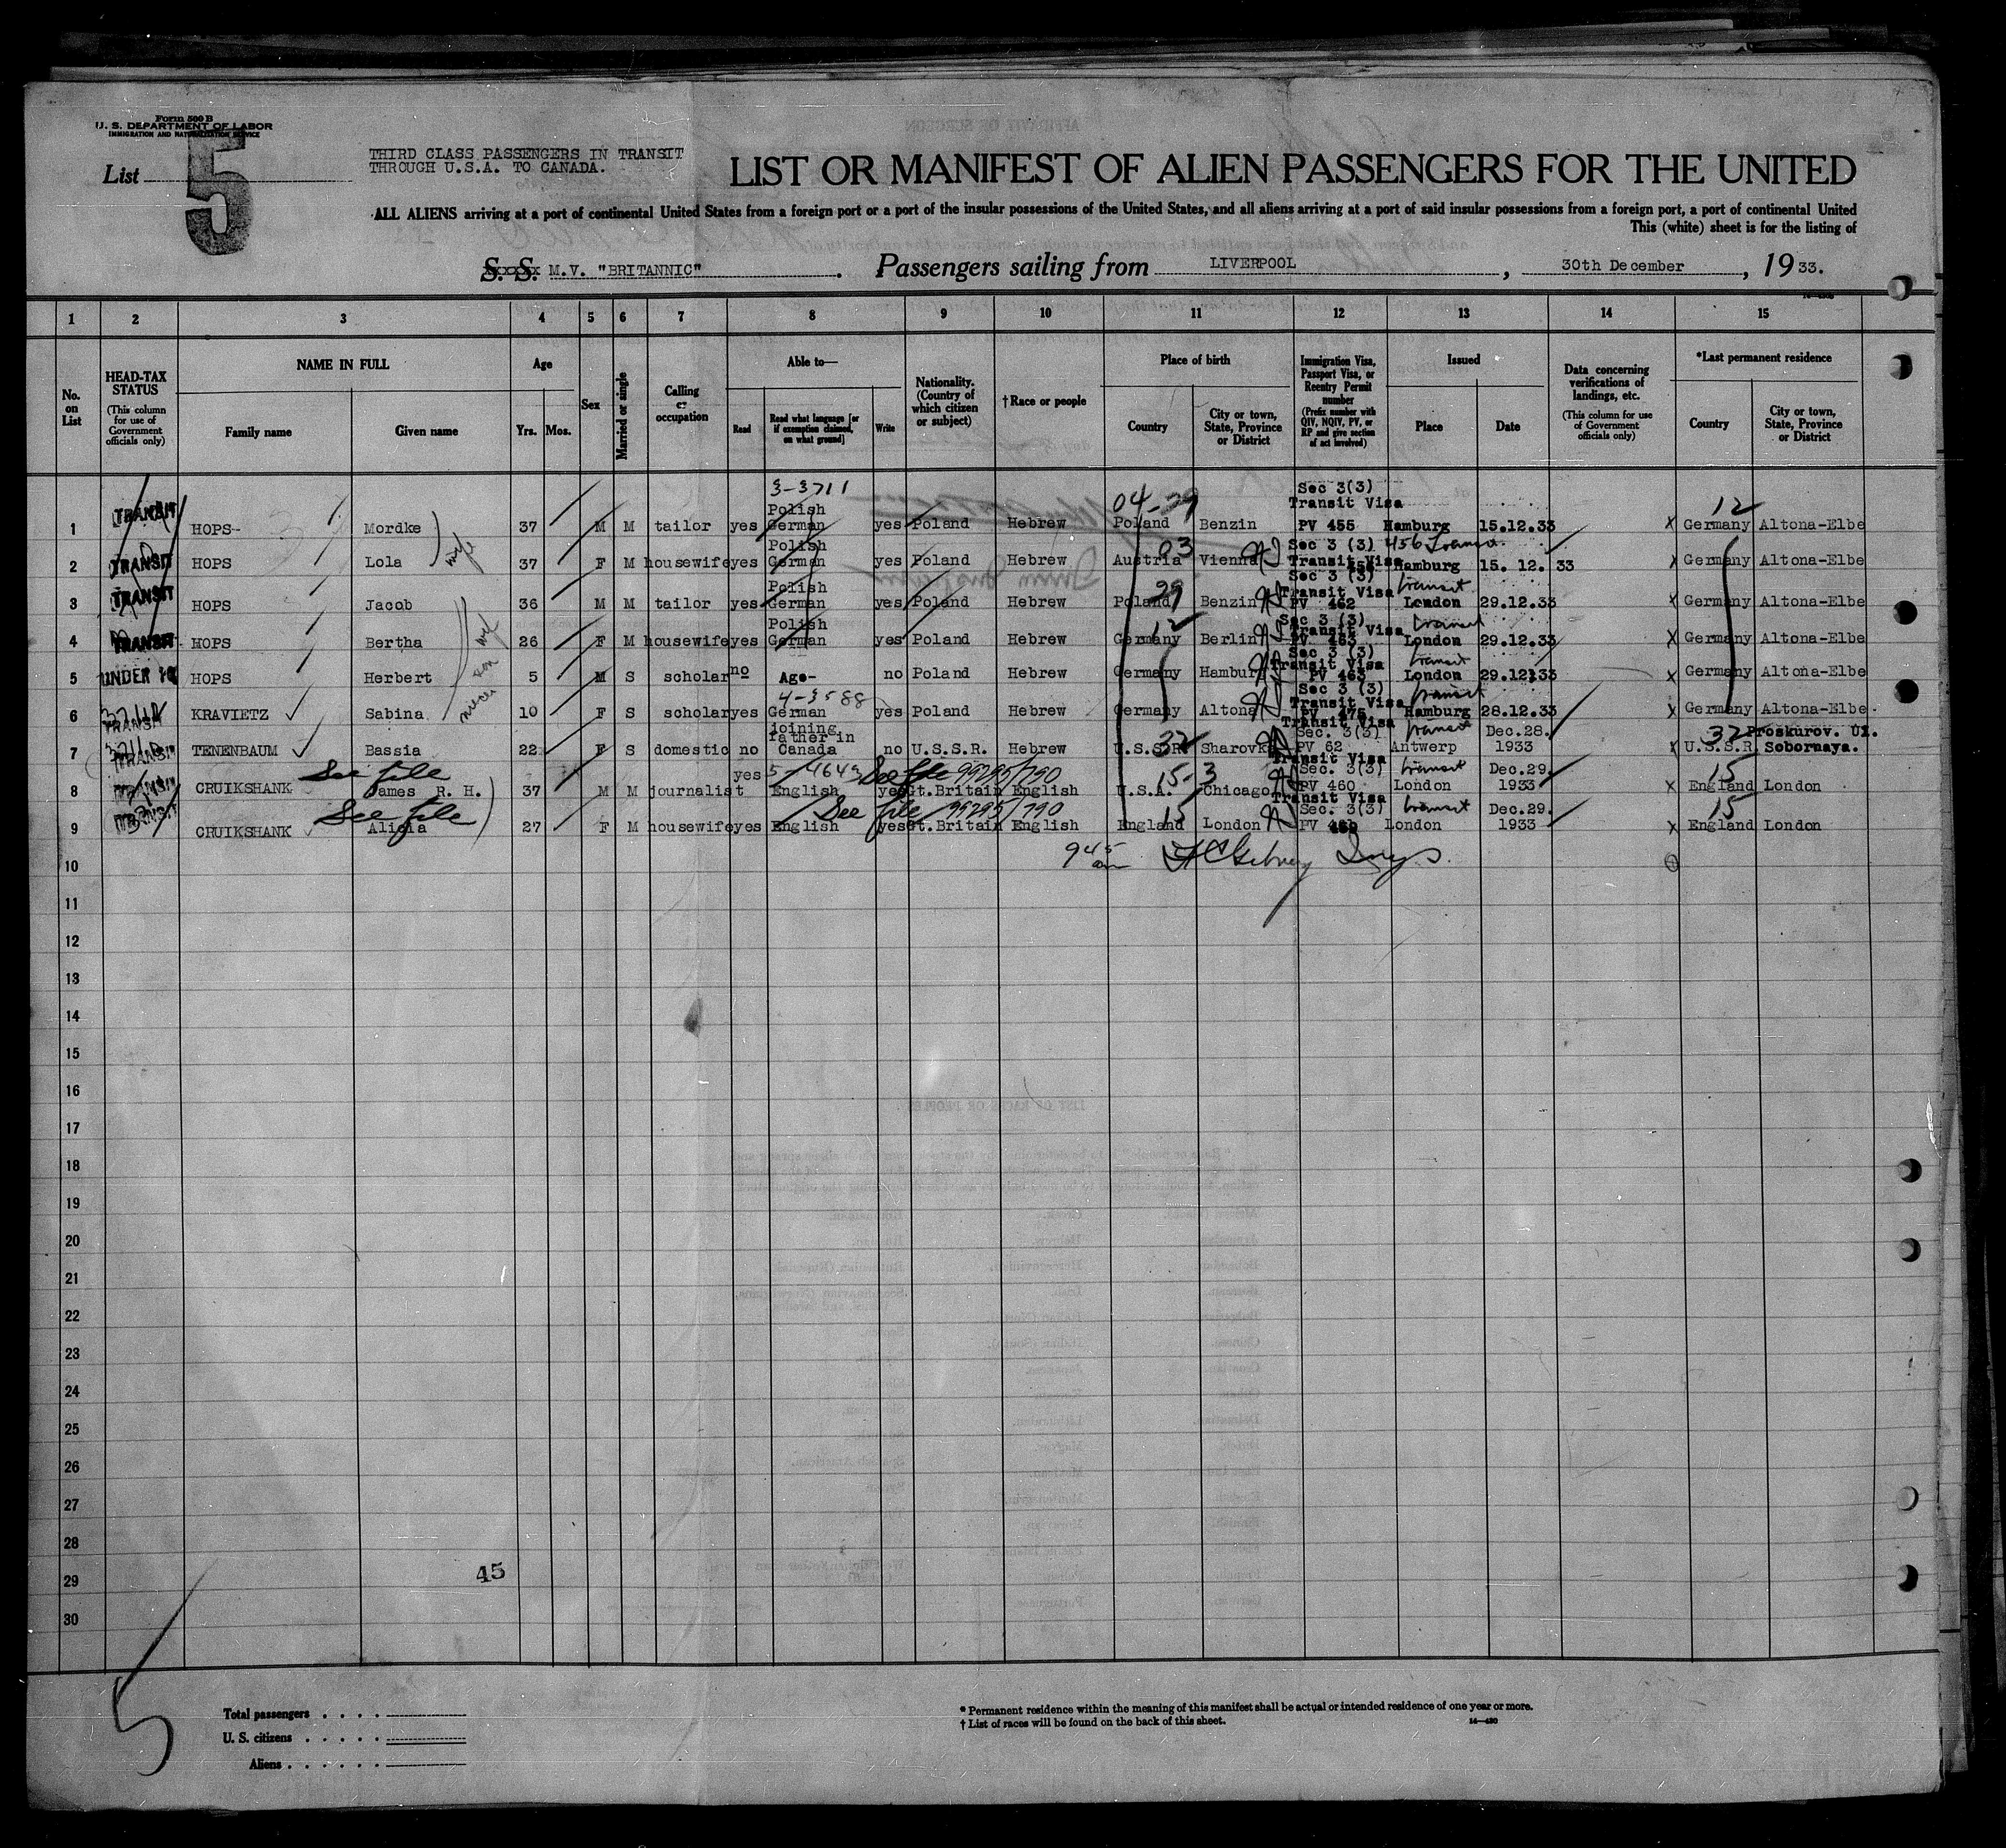 Form 500 B
U. S. DEPARTMENT OF LABOR
IMMIGRATION AND NATURALIZATION SERVICE
List 5
THIRD CLASS PASSENGERS IN TRANSIT
THROUGH U.S.A. TO CANADA.
LIST OR MANIFEST OF ALIEN PASSENGERS FOR THE UNITED
ALL ALIENS arriving at a port of continental United States from a foreign port or a port of the insular possessions of the United States, and all aliens arriving at a port of said insular possessions from a foreign port, a port of continental United
This (white) sheet is for the listing of
S. S. M.V. "BRITANNIC" . Passengers sailing from LIVERPOOL , 30th December , 19 33.
1 2 3 4 5 6 7 8 9 10 11 12 13 14 15
No. on List
HEAD-TAX STATUS
(This column for use of Government officials only)
NAME IN FULL
Family name
Given name
Age
Yrs. Mos.
Sex
Married or single
Calling or occupation
Able to—
Read
Read what language [or if exemption claimed, on what ground]
Write
Nationality. (Country of which citizen or subject)
†Race or people
Place of birth
Country
City or town, State, Province or District
Immigration Visa, Passport Visa, or Reentry Permit number
(Prefix number with QIV, NQIV, PV, or RP and give section of act involved)
Issued
Place
Date
Data concerning verifications of landings, etc.
(This column for use of Government officials only)
*Last permanent residence
Country
City or town, State, Province or District
3-3711
04-29
Sec 3(3)
Transit Visa
12
1 TRANSIT HOPS-- Mordke 37 M M tailor yes Polish German yes Poland Hebrew Poland Benzin PV 455 Hamburg 15.12.33 x Germany Altona-Elbe
wife
2 TRANSIT HOPS Lola 37 F M housewife yes Polish German yes Poland Hebrew Austria 03 Vienna Sec 3 (3) Transit Visa 456 Hamburg 15. 12. 33 x Germany Altona-Elbe
3 TRANSIT HOPS Jacob 36 M M tailor yes Polish German yes Poland Hebrew Poland 29 Benzin Sec 3 (3) Transit Visa PV 462 transit London 29.12.33 x Germany Altona-Elbe
4 TRANSIT HOPS Bertha wife 26 F M housewife yes Polish German yes Poland Hebrew Germany 12 Berlin Sec 3 (3) Transit Visa PV 463 transit London 29.12.33 x Germany Altona-Elbe
5 UNDER 16 HOPS Herbert son 5 M S scholar no Age- no Poland Hebrew Germany Hamburg Sec 3 (3) Transit Visa PV 463 transit London 29.12.33 x Germany Altona-Elbe
4-3588
6 TRANSIT KRAVIETZ Sabina niece 10 F S scholar yes German yes Poland Hebrew Germany Altona Sec 3 (3) Transit Visa PV 475 transit Hamburg 28.12.33 x Germany Altona-Elbe
7 TRANSIT TENENBAUM Bassia 22 F S domestic no joining father in Canada no U.S.S.R. Hebrew U.S.S.R. 32 Sharovka Transit Visa Sec. 3(3) PV 62 transit Antwerp Dec.28. 1933 x 32 U.S.S.R. Proskurov. Ul. Sobornaya.
See file 5-4649 See file 99295/790
8 TRANSIT CRUIKSHANK James R. H. 37 M M journalist yes English yes Gt.Britain English U.S.A. 15-3 Chicago Transit Visa Sec. 3(3) PV 460 transit London Dec.29. 1933 x 15 England London
See file See file 99295/790
9 TRANSIT CRUIKSHANK Alicia 27 F M housewife yes English yes Gt.Britain English England 15 London Transit Visa Sec. 3(3) PV transit London Dec.29. 1933 x 15 England London
10 9 45 am
11
12
13
14
15
16
17
18
19
20
21
22
23
24
25
26
27
28
29
30
45
5
Total passengers . . . .
U. S. citizens . . . . .
Aliens . . . . . .
* Permanent residence within the meaning of this manifest shall be actual or intended residence of one year or more.
† List of races will be found on the back of this sheet.
14—430